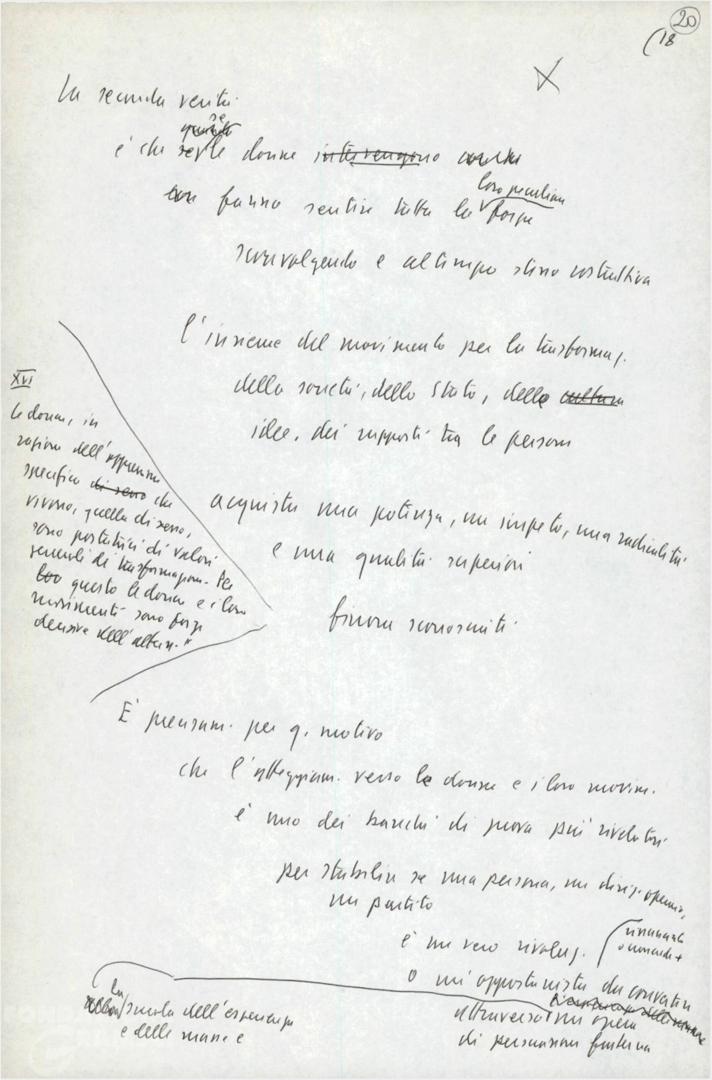 20
(18
X
La seconda verità
se
è che se le donne intervengono
loro peculiare
con fanno sentire tutta la forza
sconvolgendo e al tempo stesso costruttiva
l'insieme del movimento per la trasformaz.
della società, dello Stato, delle cultura
idee, dei rapporti tra le persone
acquista una potenza, un impeto, una radicalità
e una qualità superiori
finora sconosciuti.
XVI
Le donne, in
ragione dell'oppressione
specifica di sesso che
vivono, quella di sesso,
sono portatrici di valori
generali di trasformazione. Per
questo le donne e i loro
movimenti sono forze
decisive dell'altern."
È precisam. per q. motivo
che l'atteggiam. verso le donne e i loro movim.
è uno dei banchi di prova più rivelatori
per stabilire se una persona, un dirig. operaio,
un partito
è un vero rivoluz.
rinunciato
o un opportunista da convertire
attraverso un'opera
di persuasione fraterna
la scuola dell'esperienza
e delle masse